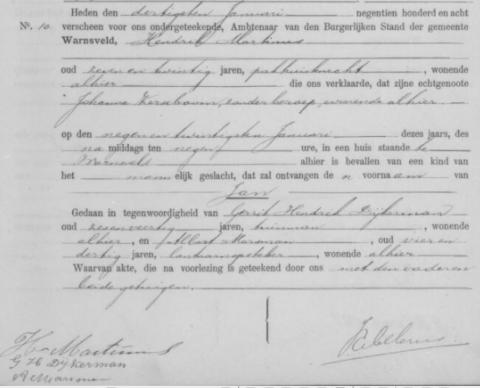 Heden den dertigsten Januari negentien honderd en acht
No. 10. verscheen voor ons ondergeteekende, Ambtenaar van den Burgerlijken Stand der gemeente
Warnsveld, Hendrik Martinus
oud zeven en twintig jaren, pakhuisknecht, wonende
alhier die ons verklaarde, dat zijne echtgenoote
Johanna zonder beroep, wonende alhier
op den negen en twintigsten Januari dezes jaars, des
na middags ten negen ure, in een huis staande te
Warnsveld alhier is bevallen van een kind van
het mannelijk geslacht, dat zal ontvangen de n voornaam van
Jan
Gedaan in tegenwoordigheid van Gerrit Hendrik Dijkerman
oud zes en veertig jaren, tuinman, wonende
alhier, en Albert Marsman, oud vier en
dertig jaren, lantaarnopsteker, wonende alhier
Waarvan akte, die na voorlezing is geteekend door ons met den vader en
beide getuigen.
H Martinus
G H Dijkerman
A Marsman